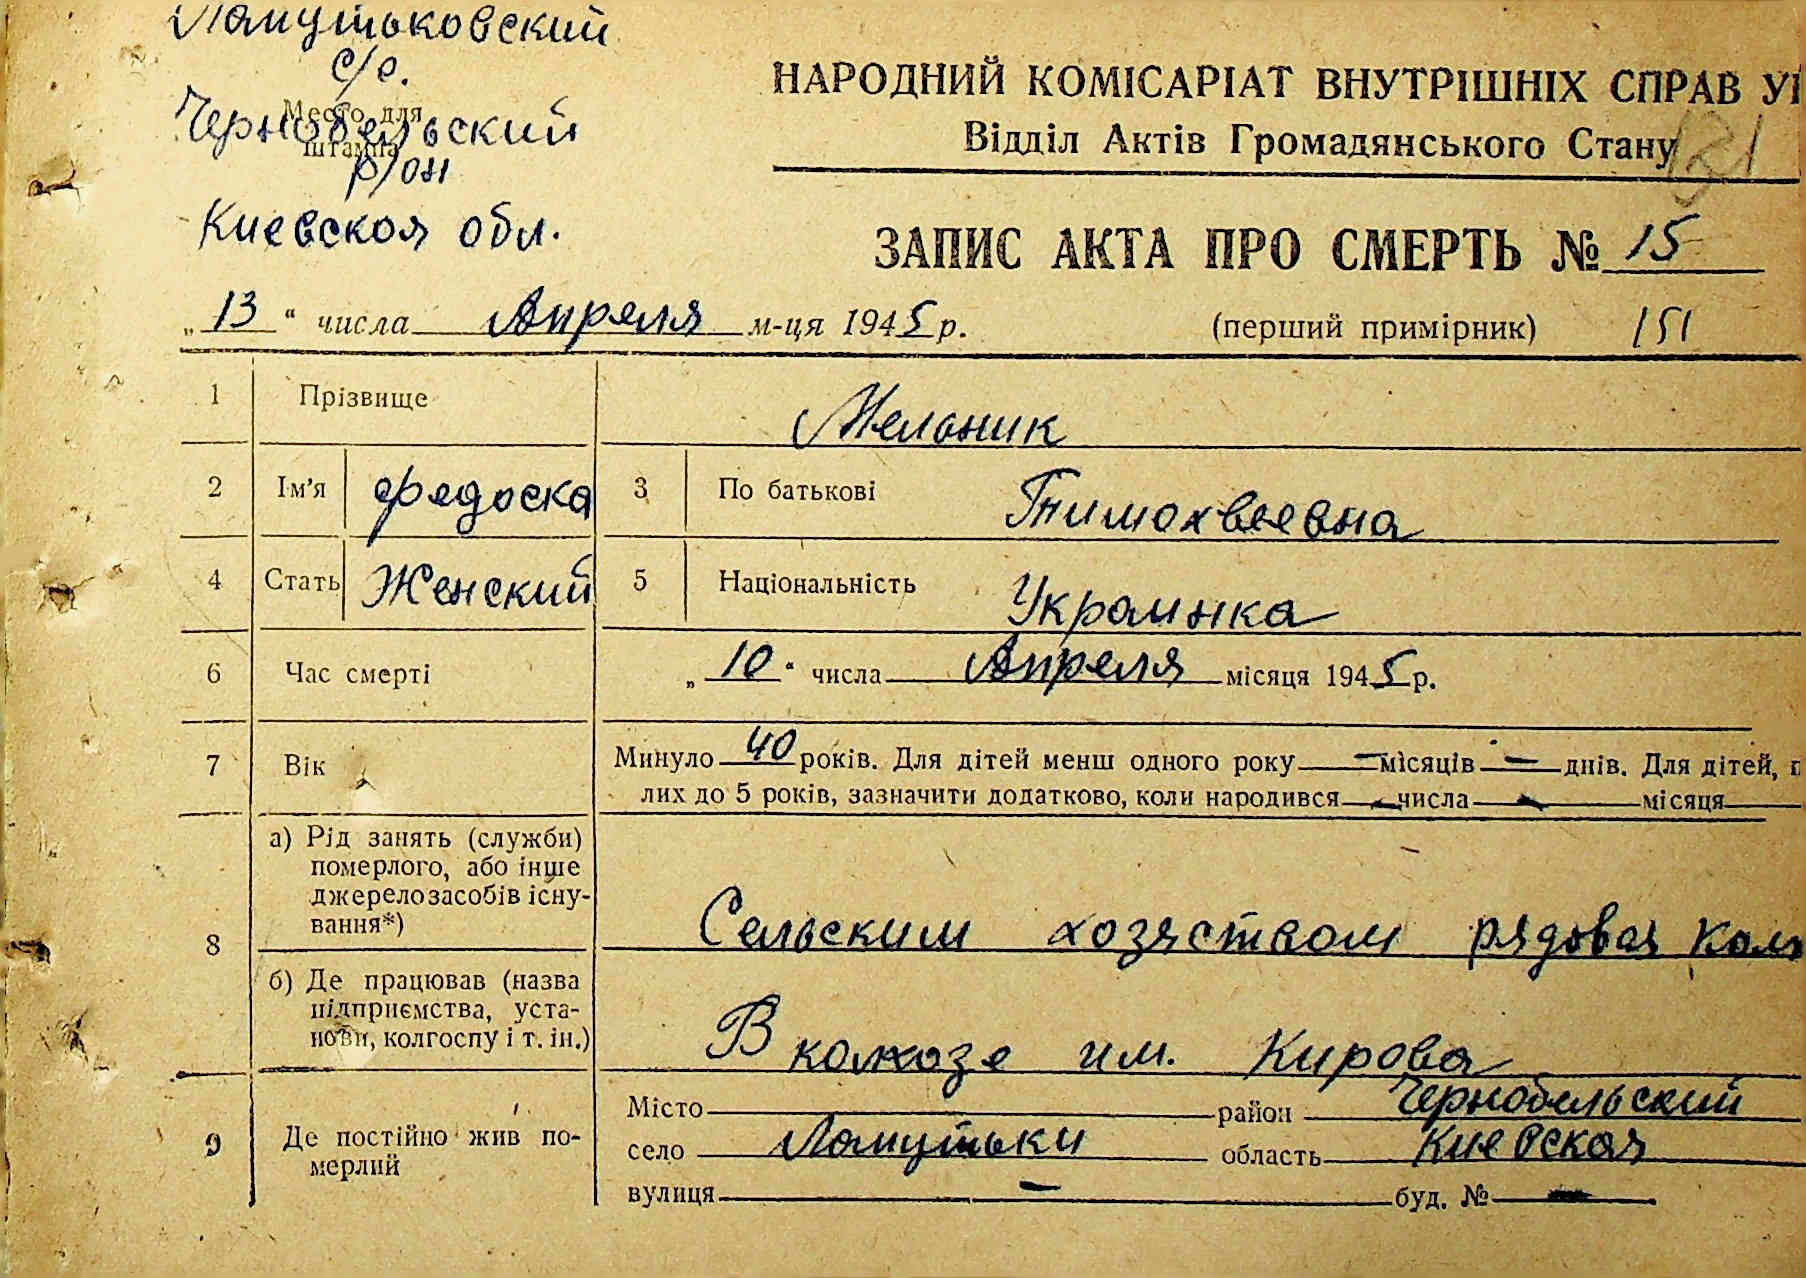 Ламутьковский
с/с.
Место для
Чернобельский
штампа
р/он
Киевская обл.
НАРОДНИЙ КОМІСАРІАТ ВНУТРІШНІХ СПРАВ
Відділ Актів Громадянського Стану
131
ЗАПИС АКТА ПРО СМЕРТЬ № 15
„ 13 “ числа Апреля м-ця 1945 р. (перший примірник) 151
1 Прізвище Мельник
2 Ім'я Федоска 3 По батькові Тимохвеевна
4 Стать Женский 5 Національність Украинка
6 Час смерті „ 10 “ числа Апреля місяця 1945 р.
7 Вік Минуло 40 років. Для дітей менш одного року — місяців — днів. Для дітей,
лих до 5 років, зазначити додатково, коли народився — числа — місяця
8 а) Рід занять (служби)
померлого, або інше
джерело засобів існу-
вання*) Сельским хозяством рядовая
б) Де працював (назва
підприємства, уста-
нови, колгоспу і т. ін.) В колхозе им. Кирова
9 Де постійно жив по-
мерлий
Місто район Чернобельский
село Ламутьки область Киевская
вулиця — буд. № —